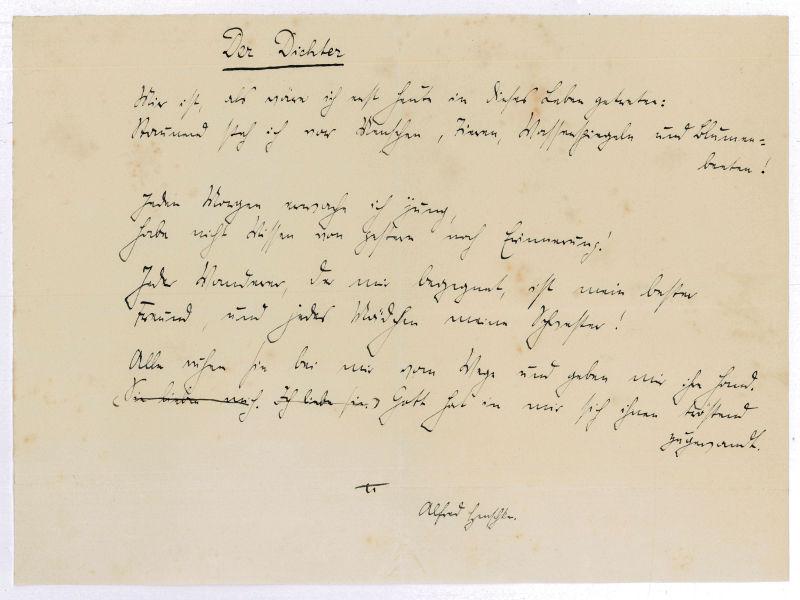 Der Dichter
Mir ist, als wäre ich erst heute in dieses Leben getreten:
Staunend steh ich vor Menschen, Tieren, Wasserspiegeln und Blumen=
beeten!
Jeden Morgen erwache ich jung,
Habe nicht Wissen von gestern noch Erinnerung!
Jeder Wanderer, der mir begegnet, ist mein bester
Freund, und jedes Mädchen meine Schwester!
Alle ruhen sie bei mir vom Wege und geben mir ihre Hand.
(Sie lieben mich. Ich liebe sie.) Gott hat in mir sich ihnen tröstend
zugewandt.
Alfred Henschke.